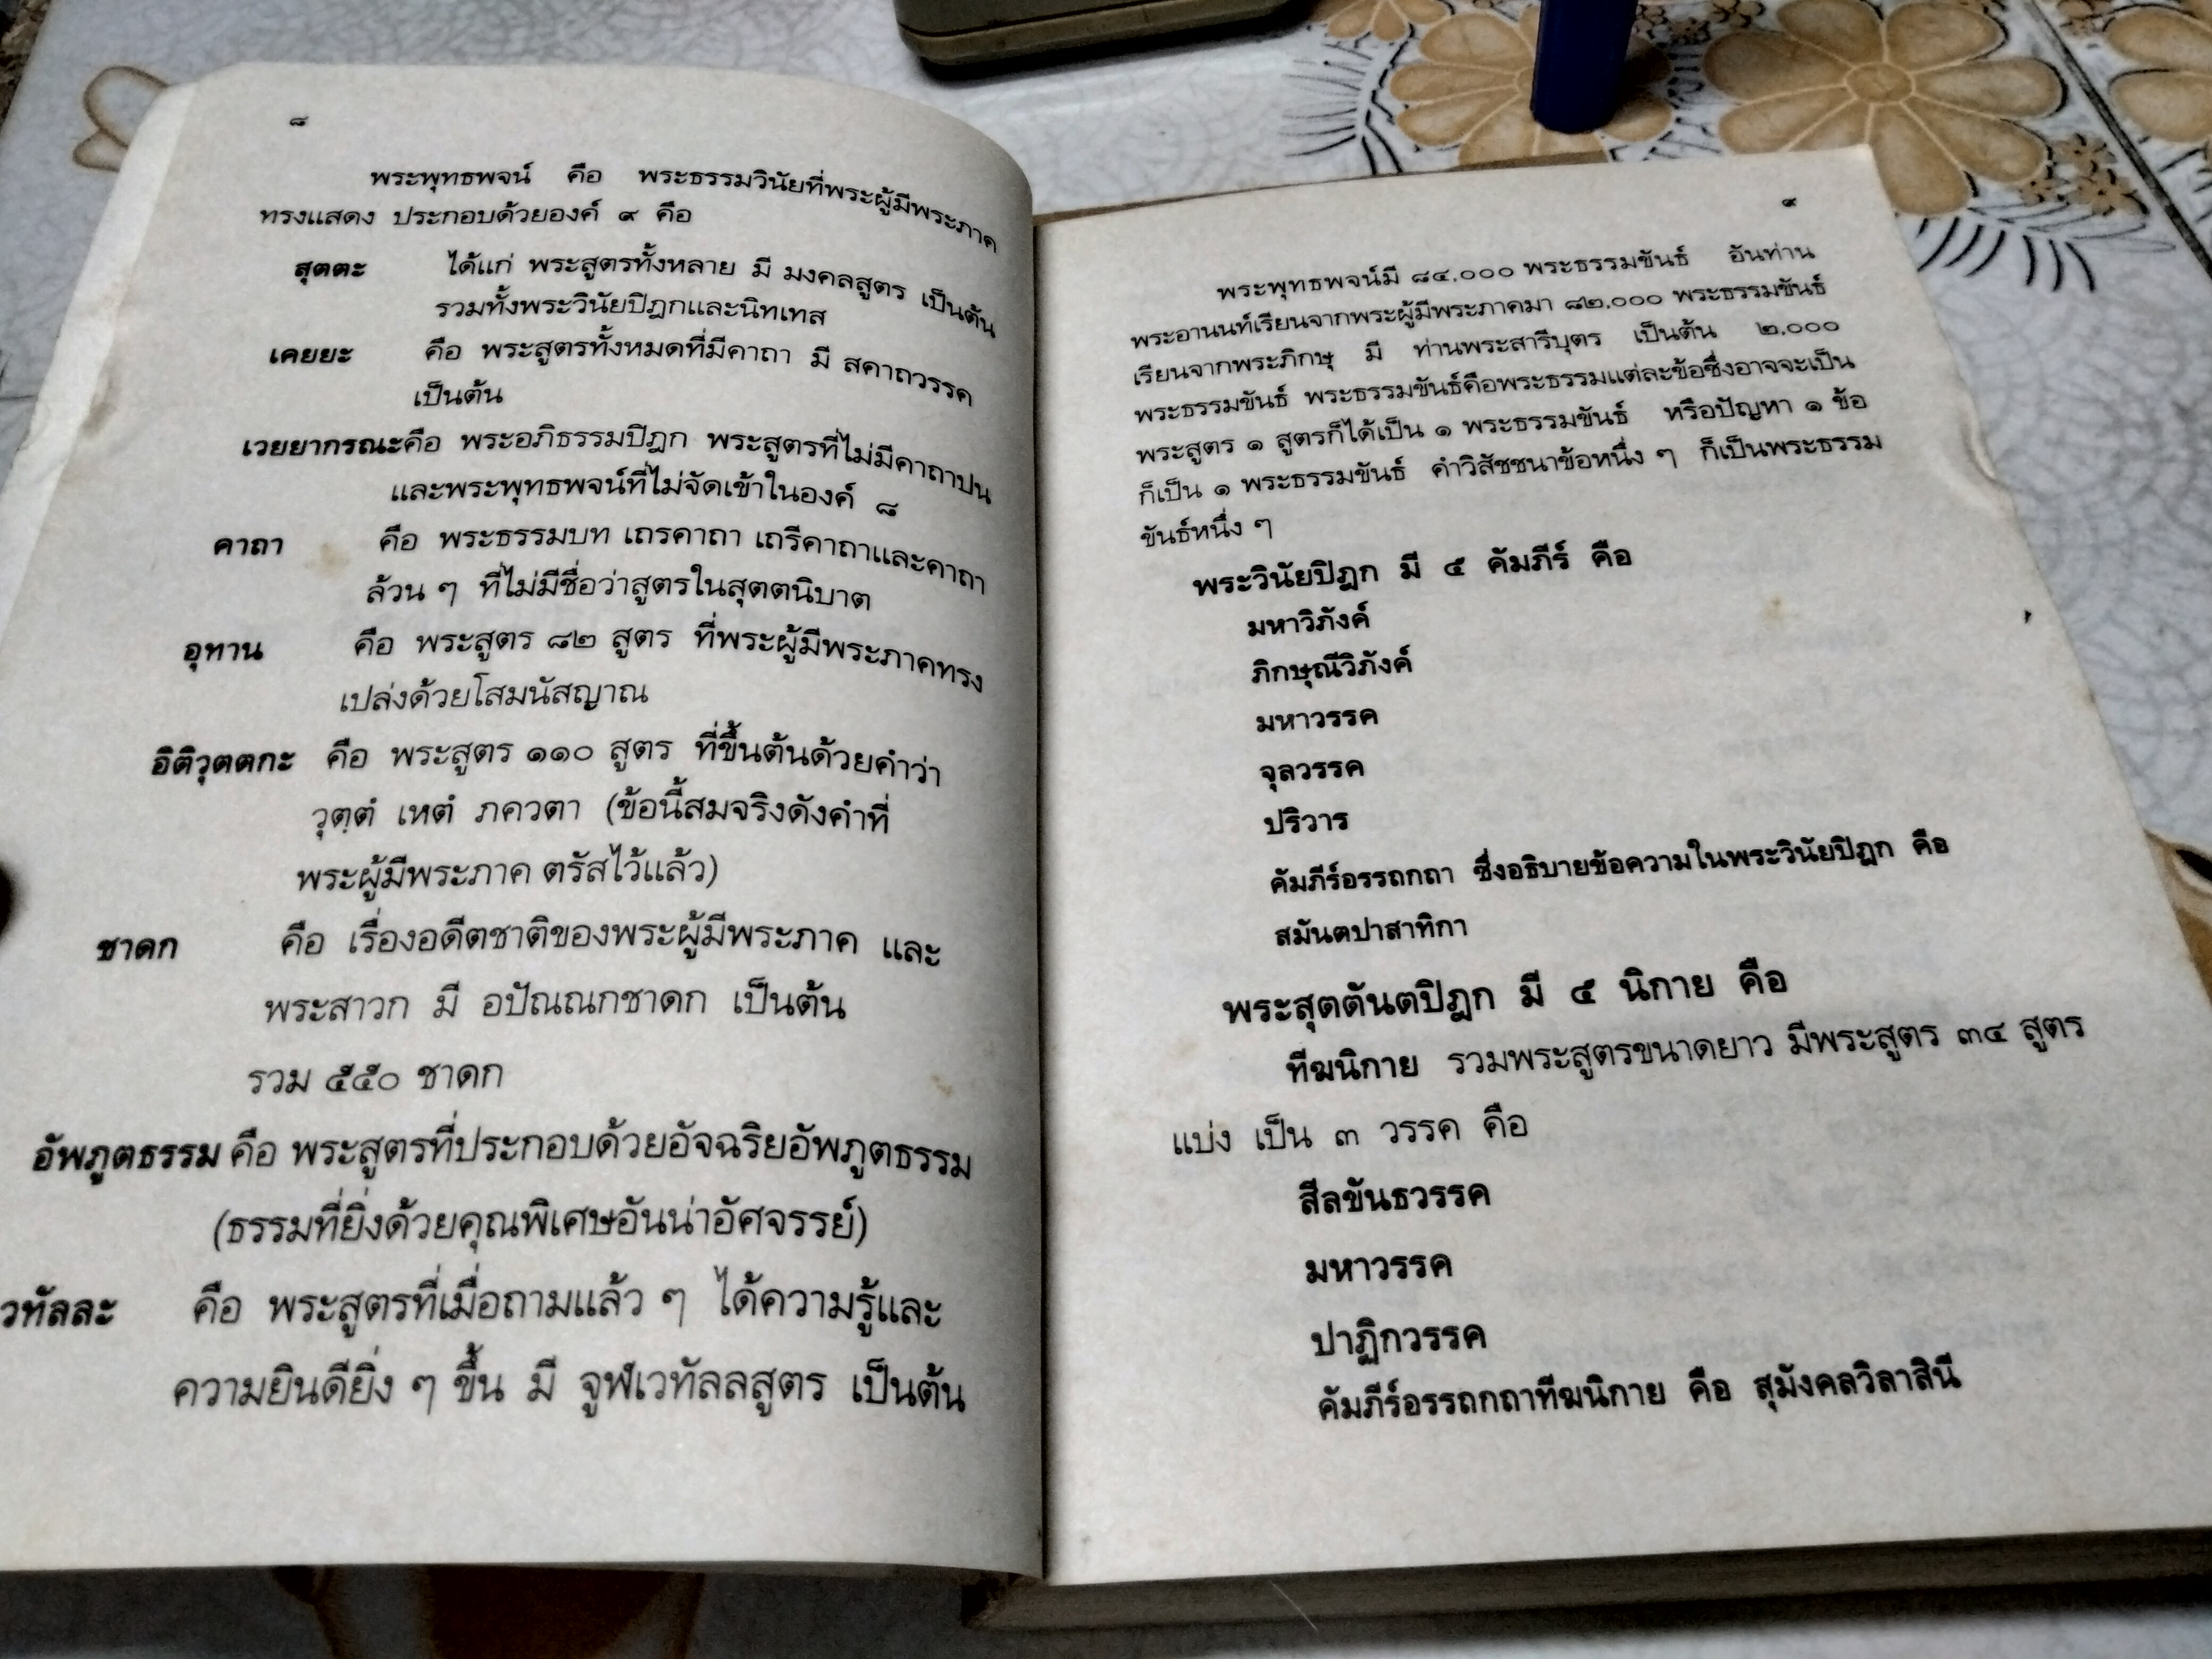 ๘
พระพุทธพจน์ คือ พระธรรมวินัยที่พระผู้มีพระภาค
ทรงแสดง ประกอบด้วยองค์ ๙ คือ
สุตตะ ได้แก่ พระสูตรทั้งหลาย มี มงคลสูตร เป็นต้น
รวมทั้งพระวินัยปิฎกและนิทเทส
เคยยะ คือ พระสูตรทั้งหมดที่มีคาถา มี สคาถวรรค
เป็นต้น
เวยยากรณะคือ พระอภิธรรมปิฎก พระสูตรที่ไม่มีคาถาปน
และพระพุทธพจน์ที่ไม่จัดเข้าในองค์ ๘
คาถา คือ พระธรรมบท เถรคาถา เถรีคาถาและคาถา
ล้วน ๆ ที่ไม่มีชื่อว่าสูตรในสุตตนิบาต
อุทาน คือ พระสูตร ๘๒ สูตร ที่พระผู้มีพระภาคทรง
เปล่งด้วยโสมนัสญาณ
อิติวุตตกะ คือ พระสูตร ๑๑๐ สูตร ที่ขึ้นต้นด้วยคำว่า
วุตฺตํ เหตํ ภควตา (ข้อนี้สมจริงดังคำที่
พระผู้มีพระภาค ตรัสไว้แล้ว)
ชาดก คือ เรื่องอดีตชาติของพระผู้มีพระภาค และ
พระสาวก มี อปัณณกชาดก เป็นต้น
รวม ๕๕๐ ชาดก
อัพภูตธรรม คือ พระสูตรที่ประกอบด้วยอัจฉริยอัพภูตธรรม
(ธรรมที่ยิ่งด้วยคุณพิเศษอันน่าอัศจรรย์)
วทัลละ คือ พระสูตรที่เมื่อถามแล้ว ๆ ได้ความรู้และ
ความยินดียิ่ง ๆ ขึ้น มี จูฬเวทัลลสูตร เป็นต้น
๙
พระพุทธพจน์มี ๘๔,๐๐๐ พระธรรมขันธ์ อันท่าน
พระอานนท์เรียนจากพระผู้มีพระภาคมา ๘๒,๐๐๐ พระธรรมขันธ์
เรียนจากพระภิกษุ มี ท่านพระสารีบุตร เป็นต้น ๒,๐๐๐
พระธรรมขันธ์ พระธรรมขันธ์คือพระธรรมแต่ละข้อซึ่งอาจจะเป็น
พระสูตร ๑ สูตรก็ได้เป็น ๑ พระธรรมขันธ์ หรือปัญหา ๑ ข้อ
ก็เป็น ๑ พระธรรมขันธ์ คำวิสัชชนาข้อหนึ่ง ๆ ก็เป็นพระธรรม
ขันธ์หนึ่ง ๆ
พระวินัยปิฎก มี ๕ คัมภีร์ คือ
มหาวิภังค์
ภิกษุณีวิภังค์
มหาวรรค
จุลวรรค
ปริวาร
คัมภีร์อรรถกถา ซึ่งอธิบายข้อความในพระวินัยปิฎก คือ
สมันตปาสาทิกา
พระสุตตันตปิฎก มี ๕ นิกาย คือ
ทีฆนิกาย รวมพระสูตรขนาดยาว มีพระสูตร ๓๔ สูตร
แบ่ง เป็น ๓ วรรค คือ
สีลขันธวรรค
มหาวรรค
ปาฏิกวรรค
คัมภีร์อรรถกถาทีฆนิกาย คือ สุมังคลวิลาสินี